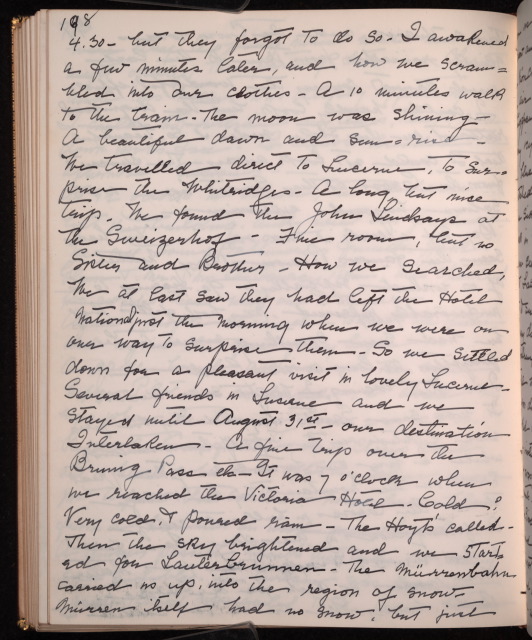 198
4.30 - but they forgot to do so - I awakened
a few minutes later, and how we scram=
bled into our clothes - A 10 minutes walk
to the train - the moon was shining -
A beautiful dawn and sun = rise -
We travelled direct to Lucerne, to sur=
prise the Whitridges - A long but nice
trip. We found the John Lindsays at
the Sweizerhof - Fine room, but no
Sister and Brother - How we searched,
We at last saw they had left the Hotel
National just the morning when we were on
our way to surprise them - So we settled
down for a pleasant visit in lovely Lucerne -
Several friends in Lucerne and we
stayed until August 31st - our destination
Interlaken - A fine trip over the
Bruning Pass etc - It was 7 o'clock when
we reached the Victoria Hotel - Cold!
Very cold, & poured rain - The Hoyts called -
Then the sky brightened and we start=
ed for Lauterbrunnen - The Mürrenbahn
carried us up, into the region of snow -
Mürren itself had no snow, but just